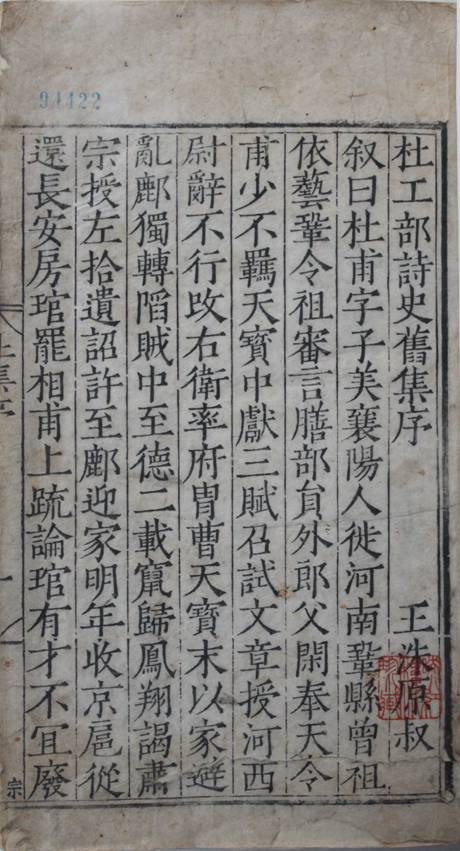 94422
杜工部詩史舊集序 王洙原叔
叙曰杜甫字子美襄陽人徙河南鞏縣曾祖
依藝鞏令祖審言膳部貟外郎父閑奉天令
甫少不羈天寳中獻三賦召試文章授河西
尉辭不行改右衛率府胄曹天寳末以家避
亂鄜獨轉陷賊中至德二載竄歸鳳翔謁肅
宗授左拾遺詔許至鄜迎家明年收京扈從
還長安房琯罷相甫上疏論琯有才不宜廢
宗